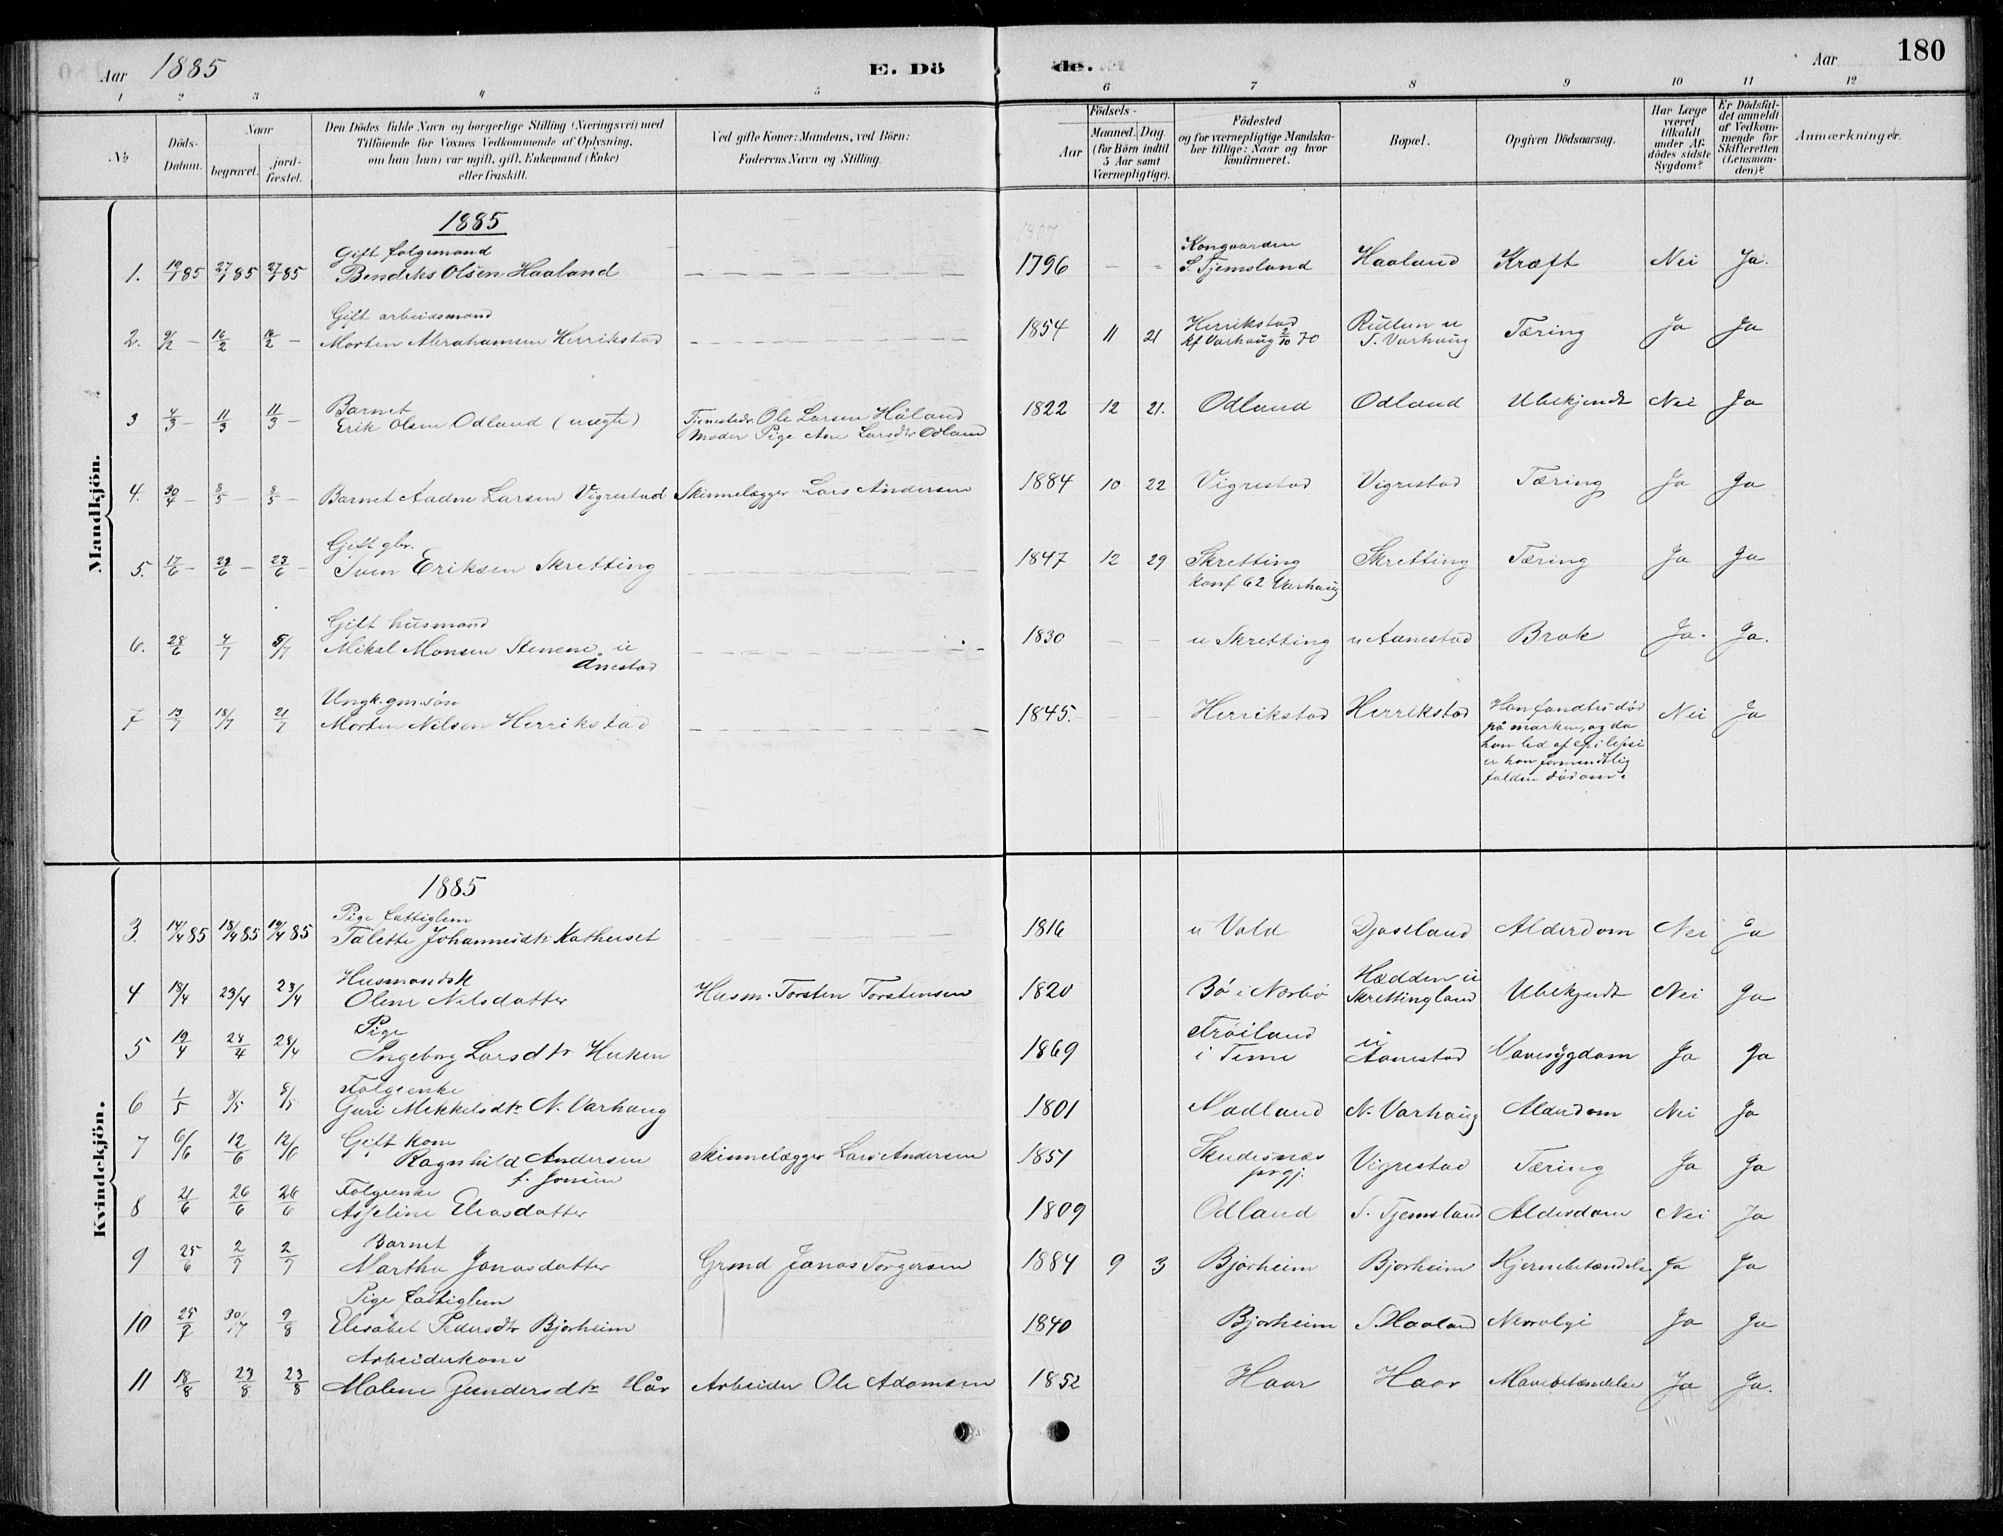 Aar 1885 E. Döde. Aar 180
1 2 3 4 5 6 7 8 9 10 11 12
No
Döds-Datum.
Naar
begravet.
jord-fæstet.
Den Dödes fulde Navn og borgerlige Stilling (Næringsvei) med
Tilföiende for Voxnes Vedkommende af Oplysning,
om han (hun) var ugift, gift, Enkemand (Enke)
eller fraskilt.
Ved gifte Koner: Mandens, ved Börn:
Faderens Navn og Stilling.
Födsels-
Aar
Maaned. Dag.
(for Börn indtil
5 Aar samt
Værnepligtige).
Födested
og for værnepligtige Mandska-
ber tillige: Naar og hvor
konfirmeret.
Bopæl.
Opgiven Dödsaarsag.
Har Læge
været
tilkaldt
under Af-
dödes sidste
Sygdom?
Er Dödsfal-
det anmeldt
af Vedkom-
mende for
Skifteretten
(Lensman-
den)?
Anmærkninger.
Mandkjön.
1885
Gift folgemand Kongaarden
1. 19/1 85 27/1 85 27/1 85 Bendiks Olsen Haaland 1796 S. Tjemsland Haaland Kræft Nei Ja.
Gift arbeidsmand
2. 9/2 16/2 16/2 Morten Abrahamsen Herrikstad 1854 11 21 Herrikstad kf Varhaug 2/10 70 S. Varhaug Tæring Ja Ja
Barnet
3 4/3 11/3 11/3 Erik Olsen Odland (uægte) Ole Larsen Håland 1822 12 21. Odland Odland Ubekjendt Nei Ja
Moder Pige Ane Larsdtr Odland
4. 30/4 8/5 8/5 Barnet Aadne Larsen Vigrestad Skinnelægger Lars Andersen 1884 10 22 Vigrestad Vigrestad Tæring Ja Ja
Gift gbr.
5. 17/6 23/6 23/6 Sven Eriksen Skretting 1847 12 29 Skretting Skretting Tæring Ja Ja
konf 62 Varhaug
Gift husmand
6. 28/6 4/7 5/7 Mikal Monsen Stenene u 1830 u Skretting u Aanestad Brok Ja. Ja.
Anestad
Ungk. gm. søn
7 13/7 18/7 21/7 Morten Nilsen Herrikstad 1845. Herrikstad Herrikstad Han fandtes død Nei Ja
på marken, og da
han led af epilepsi
er han formentlig
falden død om.
Kvindekjön.
1885
Pige Fattiglem
3. 14/4 85 18/4 85 19/4 85 Talette Johannesdtr 1816 u Vold Djaseland Alderdom Nei Ja
Husmandsk
4 18/4 23/4 23/4 Olene Nilsdatter Husm. Torsten Torstensen 1820 Bø i Nærbø Hædden u Skrettingland Ubekjendt Nei Ja
Pige
5 19/4 28/4 28/4 Ingeborg Larsdtr Huken 1869 Frøiland i Time u Aanestad Mavesygdom Ja Ja
Folgeenke
6 1/5 8/5 8/5 Guri Mikkelsdtr N. Varhaug 1801 Madland N. Varhaug Alderdom Nei Ja
Gift kone
7 6/6 12/6 12/6 Ragnhild Andersen Skinnelægger Lars Andersen 1851 Skudesnæs prgj. Vigrestad Tæring Ja Ja
Folgeenke
8 21/6 26/6 26/6 Asseline Eliasdatter 1809 Odland S. Tjemsland Alderdom Nei Ja
Barnet
9 25/6 2/7 2/7 Martha Jonasdatter Grmd Jonas Torgersen 1884 9 3 Bjorheim Bjorheim Hjernebetændelse Ja Ja
Pige Fattiglem
10 30/7 9/8 Elisabet Pedersdtr Bjorheim 1840 Bjorheim S. Haaland Nevralgi Ja Ja
Arbeiderkone
11 18/8 23/8 23/8 Malene Gundersdtr Hår Arbeider Ole Adamsen 1852 Haar Haar Mavebetændelse Ja Ja.